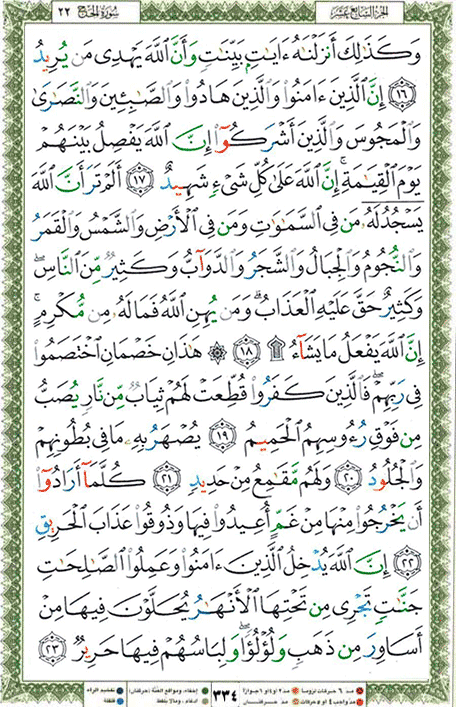 الجزء السابع عشر سورة الحج ٢٢
وَكَذَٰلِكَ أَنزَلْنَٰهُ ءَايَٰتٍۭ بَيِّنَٰتٍ وَأَنَّ ٱللَّهَ يَهْدِى مَن يُرِيدُ
١٦ إِنَّ ٱلَّذِينَ ءَامَنُوا۟ وَٱلَّذِينَ هَادُوا۟ وَٱلصَّٰبِـِٔينَ وَٱلنَّصَٰرَىٰ
وَٱلْمَجُوسَ وَٱلَّذِينَ أَشْرَكُوٓا۟ إِنَّ ٱللَّهَ يَفْصِلُ بَيْنَهُمْ
يَوْمَ ٱلْقِيَٰمَةِ ۚ إِنَّ ٱللَّهَ عَلَىٰ كُلِّ شَىْءٍ شَهِيدٌ ١٧ أَلَمْ تَرَ أَنَّ ٱللَّهَ
يَسْجُدُ لَهُۥ مَن فِى ٱلسَّمَٰوَٰتِ وَمَن فِى ٱلْأَرْضِ وَٱلشَّمْسُ وَٱلْقَمَرُ
وَٱلنُّجُومُ وَٱلْجِبَالُ وَٱلشَّجَرُ وَٱلدَّوَآبُّ وَكَثِيرٌ مِّنَ ٱلنَّاسِ ۖ
وَكَثِيرٌ حَقَّ عَلَيْهِ ٱلْعَذَابُ ۗ وَمَن يُهِنِ ٱللَّهُ فَمَا لَهُۥ مِن مُّكْرِمٍ ۚ
إِنَّ ٱللَّهَ يَفْعَلُ مَا يَشَآءُ ۩ ١٨ ۞ هَٰذَانِ خَصْمَانِ ٱخْتَصَمُوا۟
فِى رَبِّهِمْ ۖ فَٱلَّذِينَ كَفَرُوا۟ قُطِّعَتْ لَهُمْ ثِيَابٌ مِّن نَّارٍ يُصَبُّ
مِن فَوْقِ رُءُوسِهِمُ ٱلْحَمِيمُ ١٩ يُصْهَرُ بِهِۦ مَا فِى بُطُونِهِمْ
وَٱلْجُلُودُ ٢٠ وَلَهُم مَّقَٰمِعُ مِنْ حَدِيدٍ ٢١ كُلَّمَآ أَرَادُوٓا۟
أَن يَخْرُجُوا۟ مِنْهَا مِنْ غَمٍّ أُعِيدُوا۟ فِيهَا وَذُوقُوا۟ عَذَابَ ٱلْحَرِيقِ
٢٢ إِنَّ ٱللَّهَ يُدْخِلُ ٱلَّذِينَ ءَامَنُوا۟ وَعَمِلُوا۟ ٱلصَّٰلِحَٰتِ
جَنَّٰتٍ تَجْرِى مِن تَحْتِهَا ٱلْأَنْهَٰرُ يُحَلَّوْنَ فِيهَا مِنْ
أَسَاوِرَ مِن ذَهَبٍ وَلُؤْلُؤًا ۖ وَلِبَاسُهُمْ فِيهَا حَرِيرٌ ٢٣
مد ٦ حركات لزوما مد ٢ أو ٤ أو ٦ جوازا ٣٣٤ إخفاء، ومواقع الغنة (حركتان) تفخيم الراء
مد واجب ٤ أو ٥ حركات مد حركتان إدغام، وما لا يلفظ قلقلة